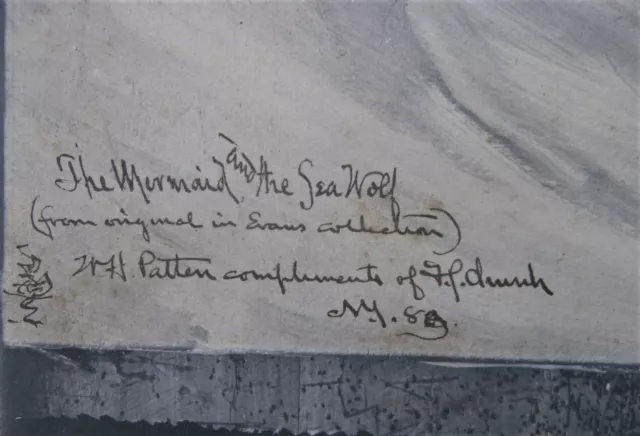 The Mermaid and the Sea Wolf
(from original in Evans collection)
W. H. Patten compliments of F. S. Church
N.Y.